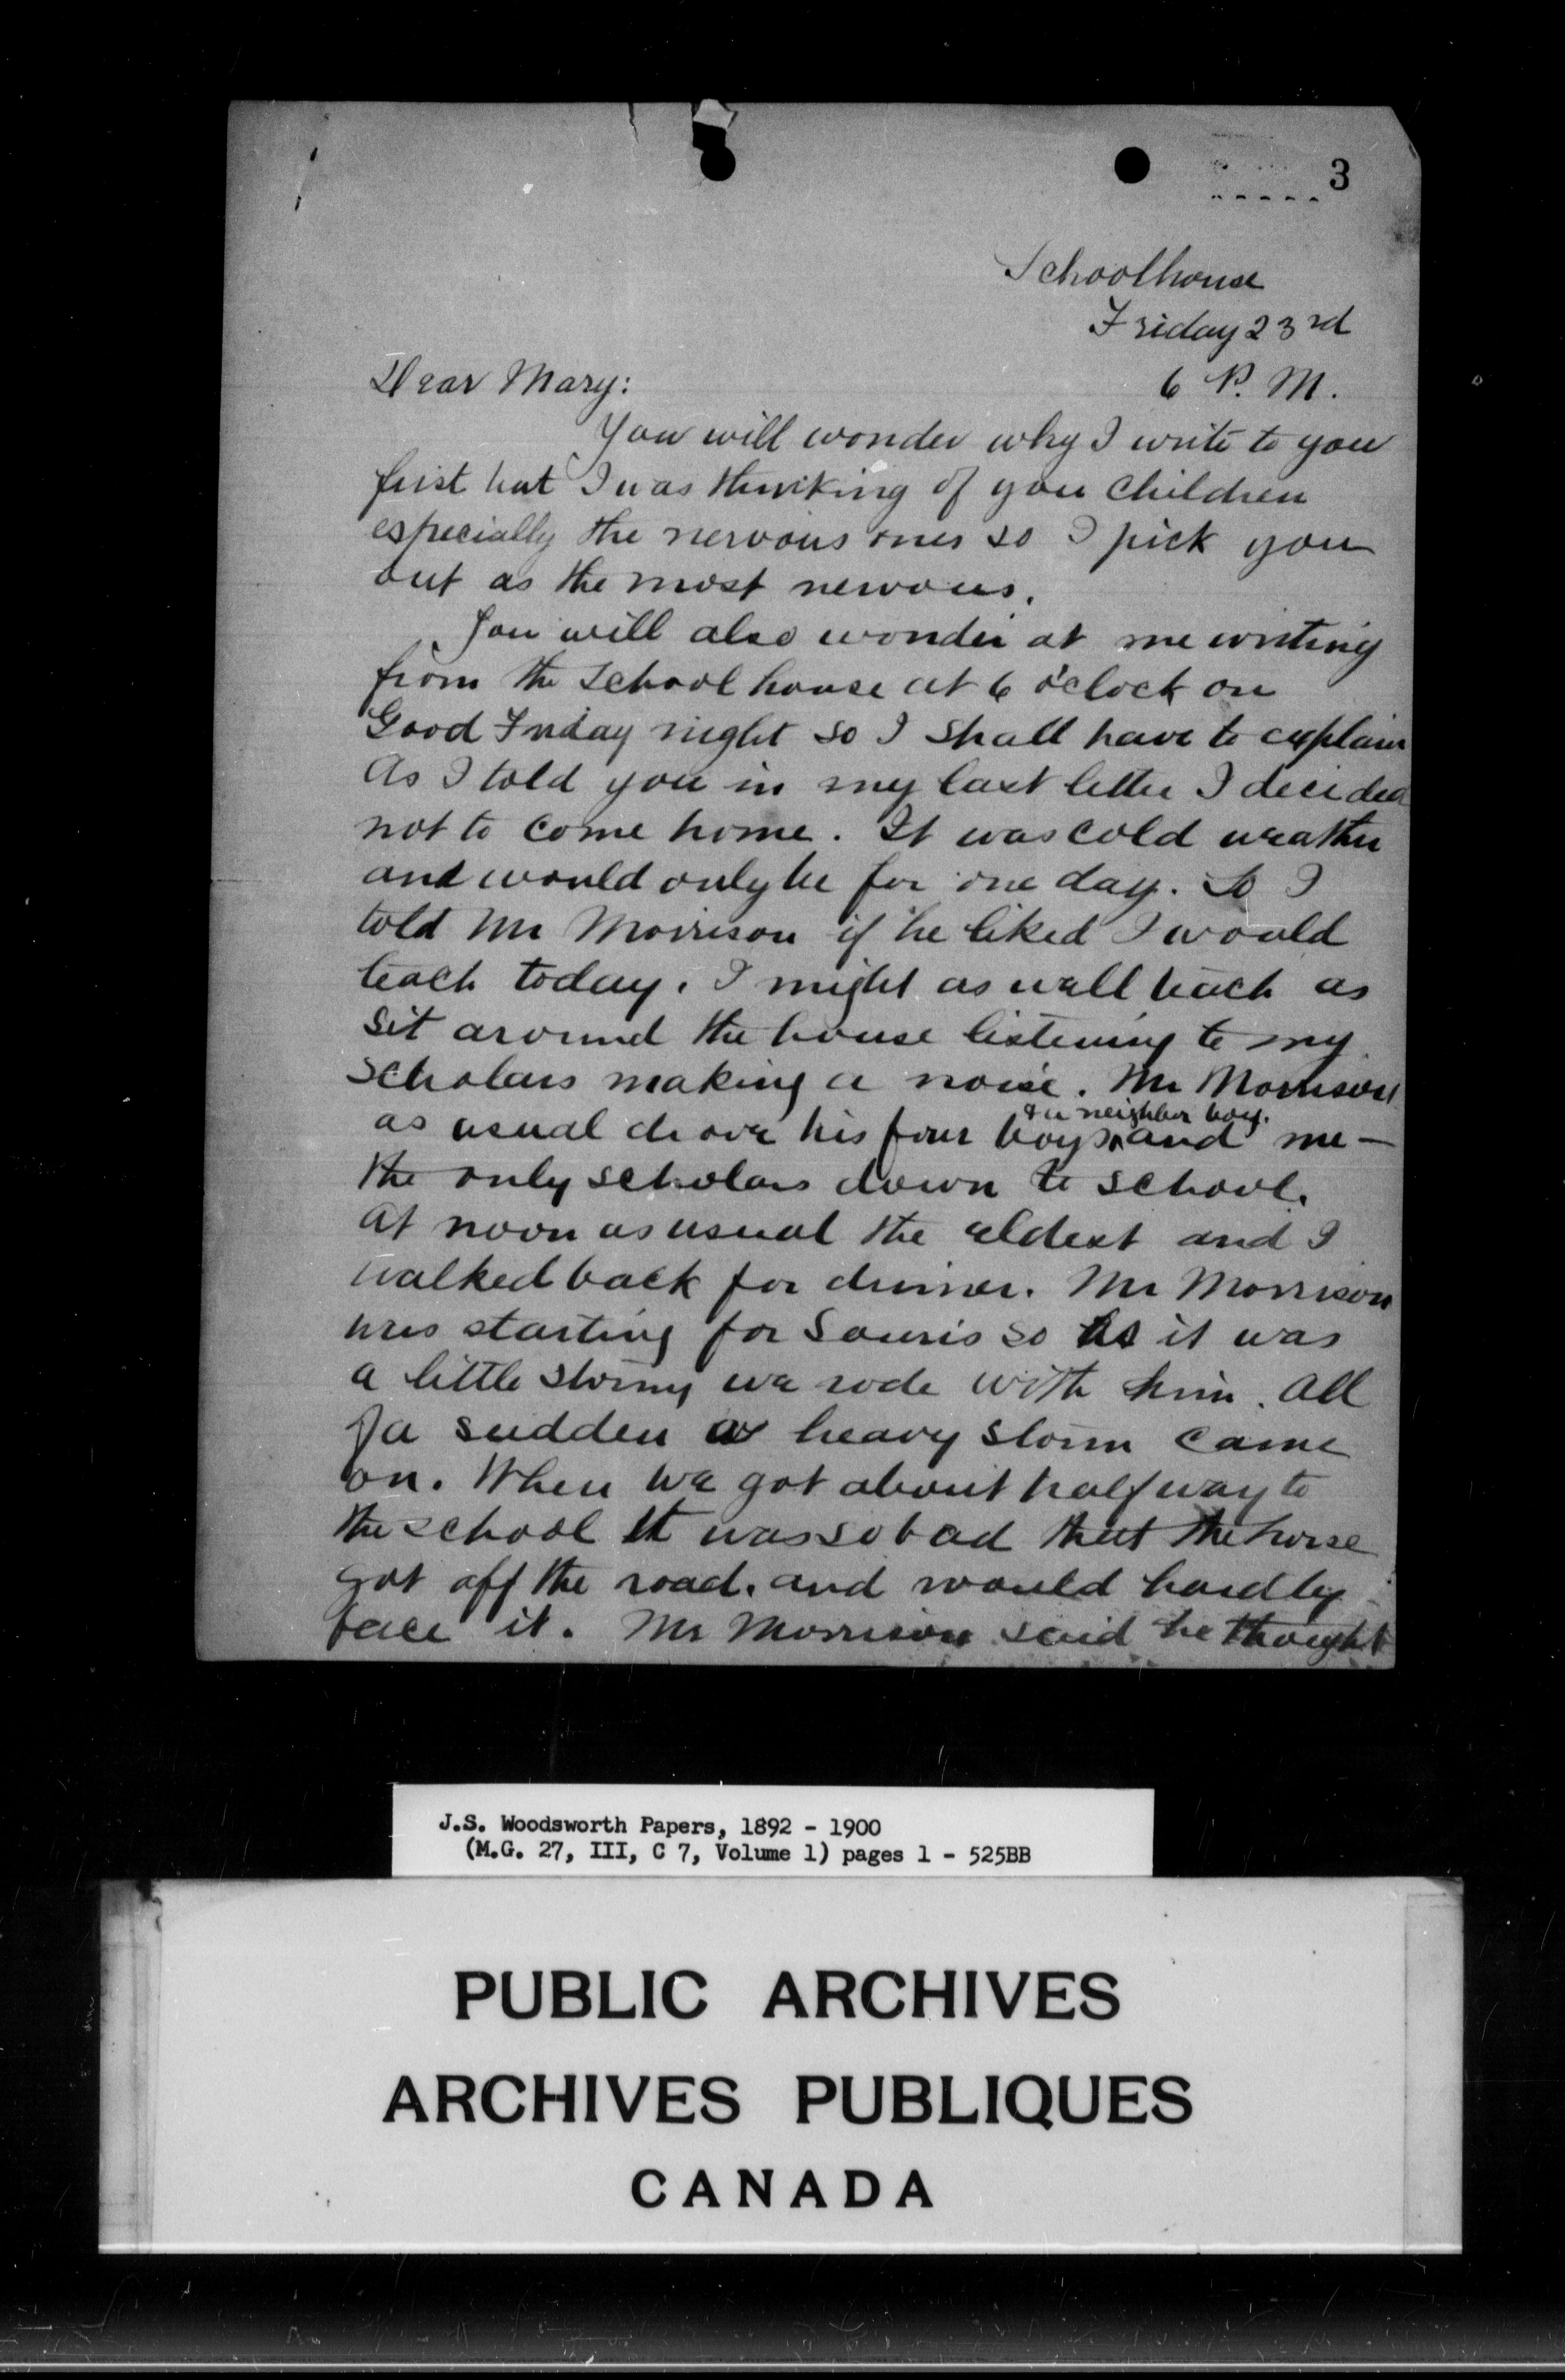 3
Schoolhouse
Friday 23rd
6 P. M.
Dear Mary:
You will wonder why I write to you
first but I was thinking of you children
especially the nervous ones so I pick you
out as the most nervous.
You will also wonder at me writing
from the school house at 6 o'clock on
Good Friday night so I shall have to explain
As I told you in my last letter I decided
not to come home. It was cold weather
and would only be for one day. So I
told Mr Morrison if he liked I would
teach today. I might as well teach as
sit around the house listening to my
scholars making a noise. Mr Morrison
& a neighbor boy.
as usual drove his four boys and me—
the only scholars down to school.
At noon as usual the eldest and I
walked back for dinner. Mr Morrison
was starting for Souris so as it was
a little stormy we rode with him. All
of a sudden a heavy storm came
on. When we got about half way to
the school it was so bad that the horse
got off the road. and would hardly
face it. Mr Morrison said he thought
J.S. Woodsworth Papers, 1892 - 1900
(M.G. 27, III, C 7, Volume 1) pages 1 - 525BB
PUBLIC ARCHIVES
ARCHIVES PUBLIQUES
CANADA